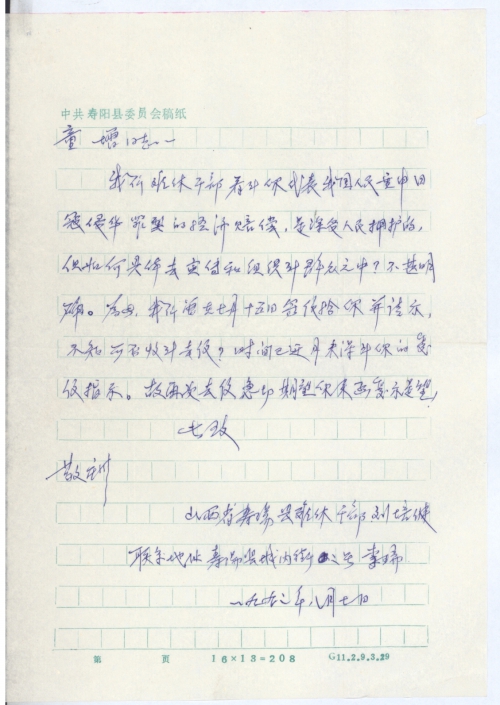 中共寿阳县委员会稿纸
童增同志：
我所离休干部看到你代表我国人民要求日
寇侵华罪业的经济赔偿，是深受人民拥护的，
但如何具体去交付和组织到群众之中？不甚明
确。为此，我所曾在七月十五日写信给你并请示，
不知可否收到去信？时间已近月未深到你的复
信指示。故再次去信急切期望你来函复示是望！
此致
敬礼
山西省寿阳县离休干部刘培健
联系地址寿阳县城内街 号 李
一九九二年八月七日
第 页 16×13=208 G11.2.9.3.29